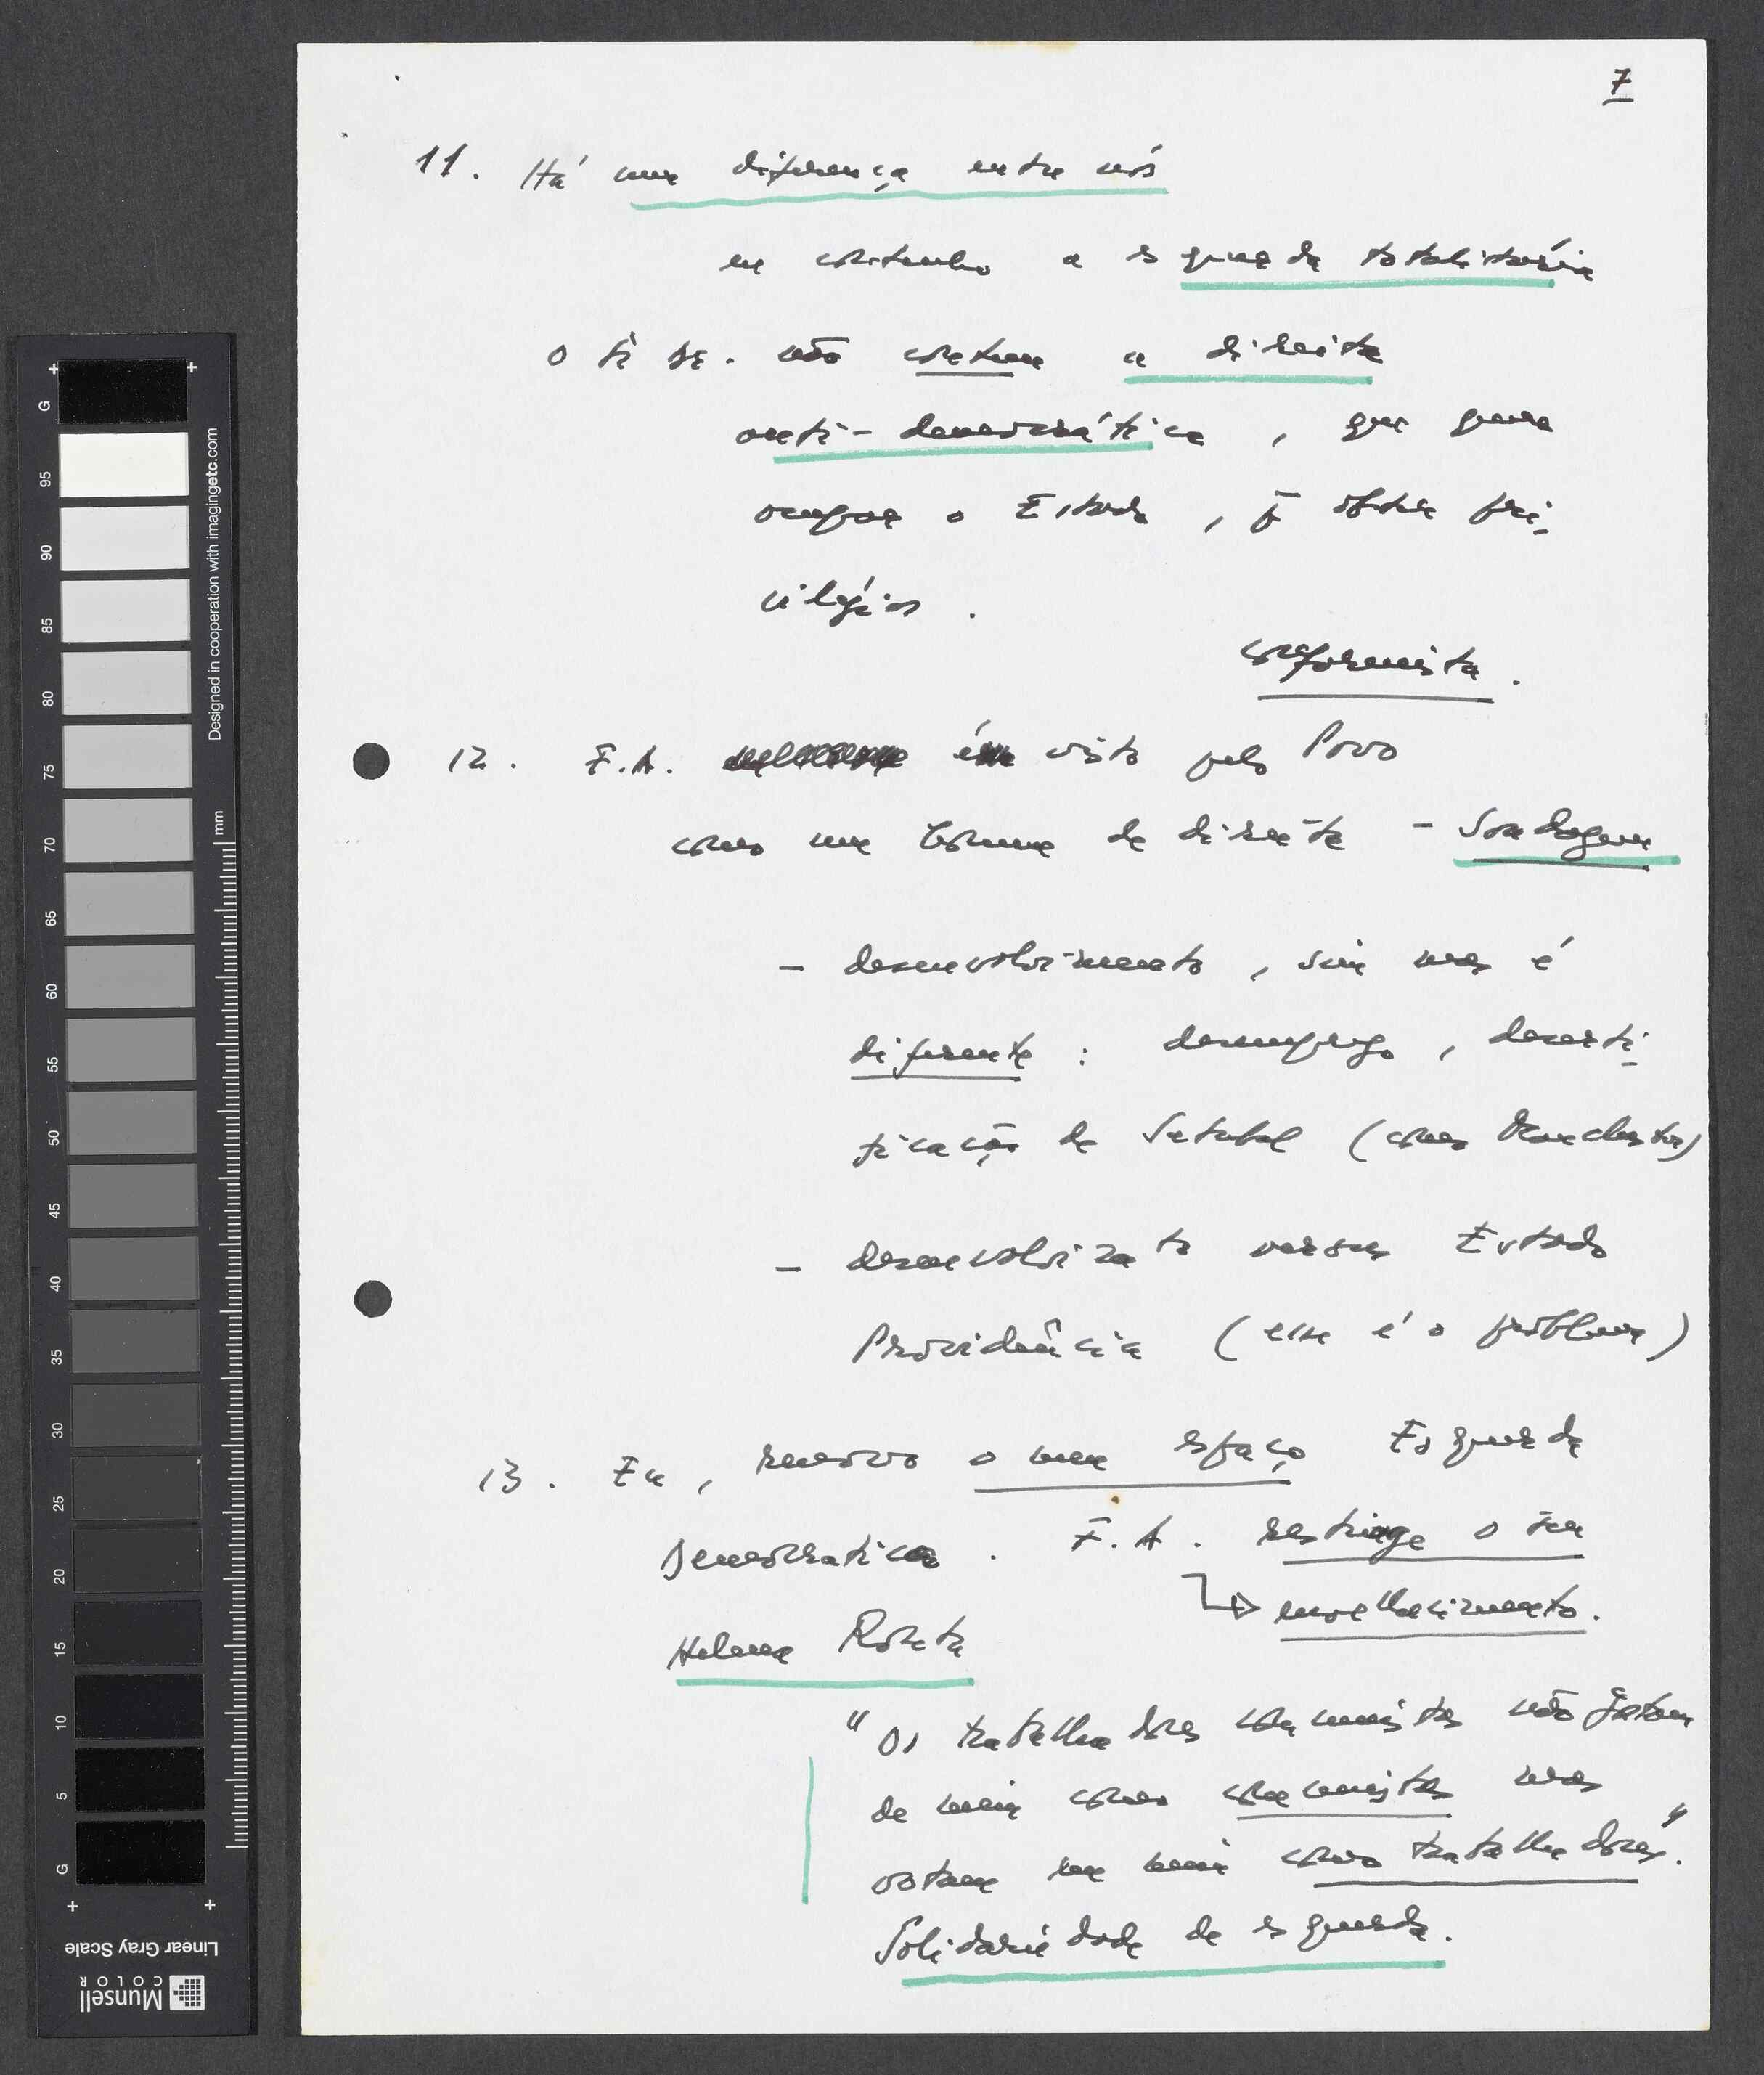 7
11. Há uma diferença entre nós
eu contenho a esquerda totalitária
o não contem a direita
anti-democrática, que quer
ocupar o Estado, p̄ obter pri-
vilégios.
conformista.
12. F.A. é visto pelo Povo
como um homem de direita - Sondagem
- desenvolvimento, sim mas é
diferente: desemprego, deserti-
ficação de Setubal (como Manchester)
- desenvolvimento versus Estado
Providência (esse é o problema)
13. Eu, renovo o meu espaço Esquerda
Democratica. F.A. restringe o seu
envelhecimento.
Helena Roseta
"Os trabalhadores comunistas não gostam
de mim como comunistas mas
votam em mim como trabalhadores".
Solidariedade de esquerda.
Designed in cooperation with imagingetc.com
mm
G
95
90
85
80
75
70
65
60
55
50
45
40
35
30
25
20
15
10
5
G
Linear Gray Scale
Munsell
COLOR